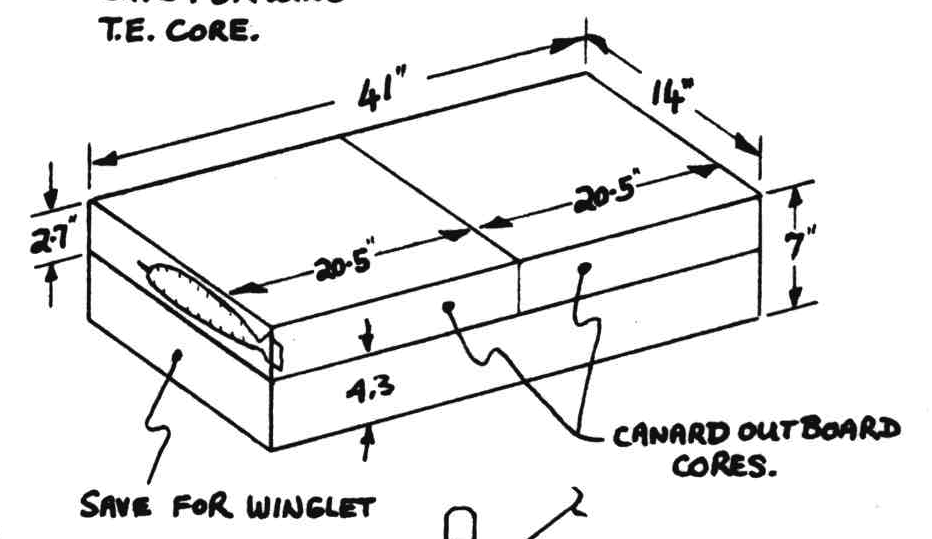 T.E. CORE.
41"
14"
2.7"
20.5"
20.5"
7"
4.3
CANARD OUTBOARD
CORES.
SAVE FOR WINGLET